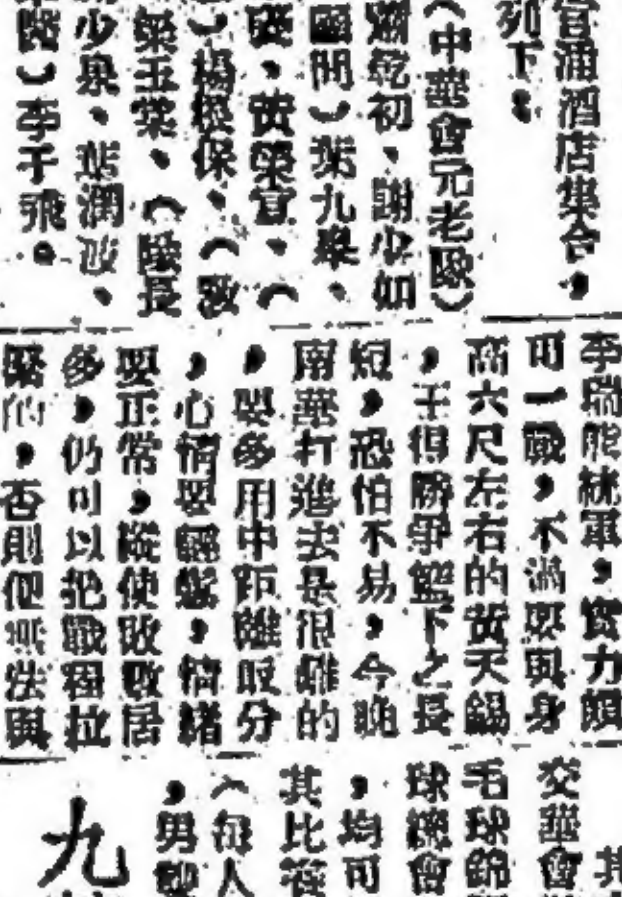 官涌酒店集合，
列下：
（中華會元老歐）
乾初、謝少如
）葉九皋、
、黃榮宣、（
）楊根保、（教
梁玉棠、（隊長
少泉、葉潤
醫）李子飛。
李瑞熊統軍，實力頗
可一戰，不過要與身
高六尺左右的黃天錫
，王得勝爭籃下之長
短，恐怕不易，今晚
南華打進去是很難的
，要多用中距離取分
，心情要輕鬆，情緒
要正常，縱使敗數居
多，仍可以把戰程拉
緊的，否則便無法與
其
交華會
毛球錦
球總會
，均可
其比
（每人
，男
九